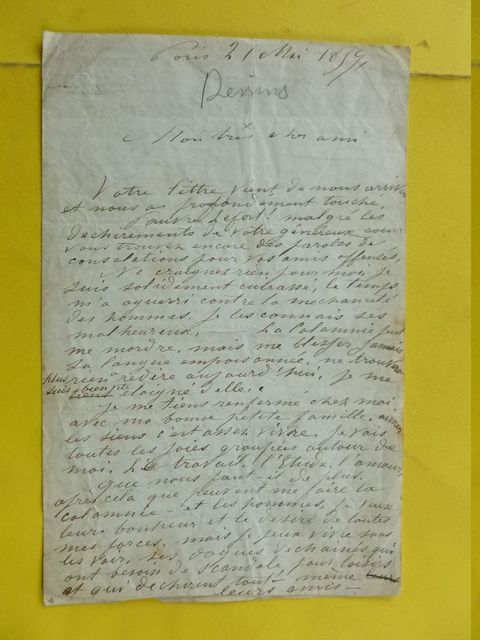 Paris 21 Mai 1859
Dessins
Mon très cher ami
Votre lettre vient de nous arriver
et nous a profondement touche,
pauvre Lefort! malgré les
dechirements de votre généreux coeur
vous trouvez encore des paroles de
consolations pour vos amis offensés,
Ne craignez rien pour moi, je
suis solidement cuirassé, le temps
m'a aguerri contre la mechanceté
des hommes, je les connais ses
malheureux. La Calomnie peut
me mordre, mais me blesser jamais
sa langue empoisonnée, ne trouvera
plus rien a redire aujourd'hui, je me
suis bien vite eloigné d'elle.
Je me tiens renfermé chez moi
avec ma bonne petite famille, aimer
les siens c'est assez vivre, je vais
toutes les joies groupées autour de
moi. Le travail, l'Etude, l'amour,
que nous faut-il de plus,
apres cela que peuvent me faire la
calomnie et les hommes, je veux
leur bonheur et le desire de toutes
mes forces, mais je peux vivre sans
les voir, ses dogues dechainés qui
ont besoin de scandale pour loisirs
et qui dechirent tout - même
leurs amis -